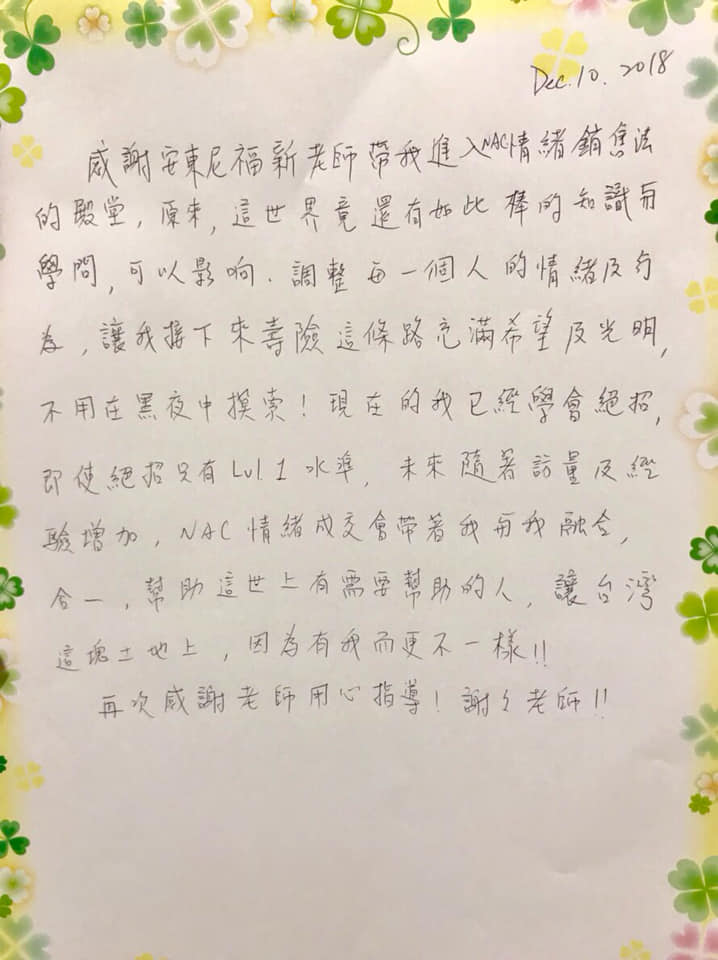 Dec. 10. 2018
感謝安東尼福新老師帶我進入NAC情緒銷售法
的殿堂，原來，這世界竟還有如此棒的知識与
學問，可以影响．調整每一個人的情緒及行
為，讓我接下來壽險這條路充滿希望及光明，
不用在黑夜中摸索！現在的我已經學會絕招，
即使絕招只有Lvl. 1 水準，未來隨著訪量及經
驗增加，NAC 情緒成交會帶著我与我融合，
合一，幫助這世上有需要幫助的人，讓台灣
這塊土地上，因為有我而更不一樣!!
再次感謝老師用心指導！謝々老師!!